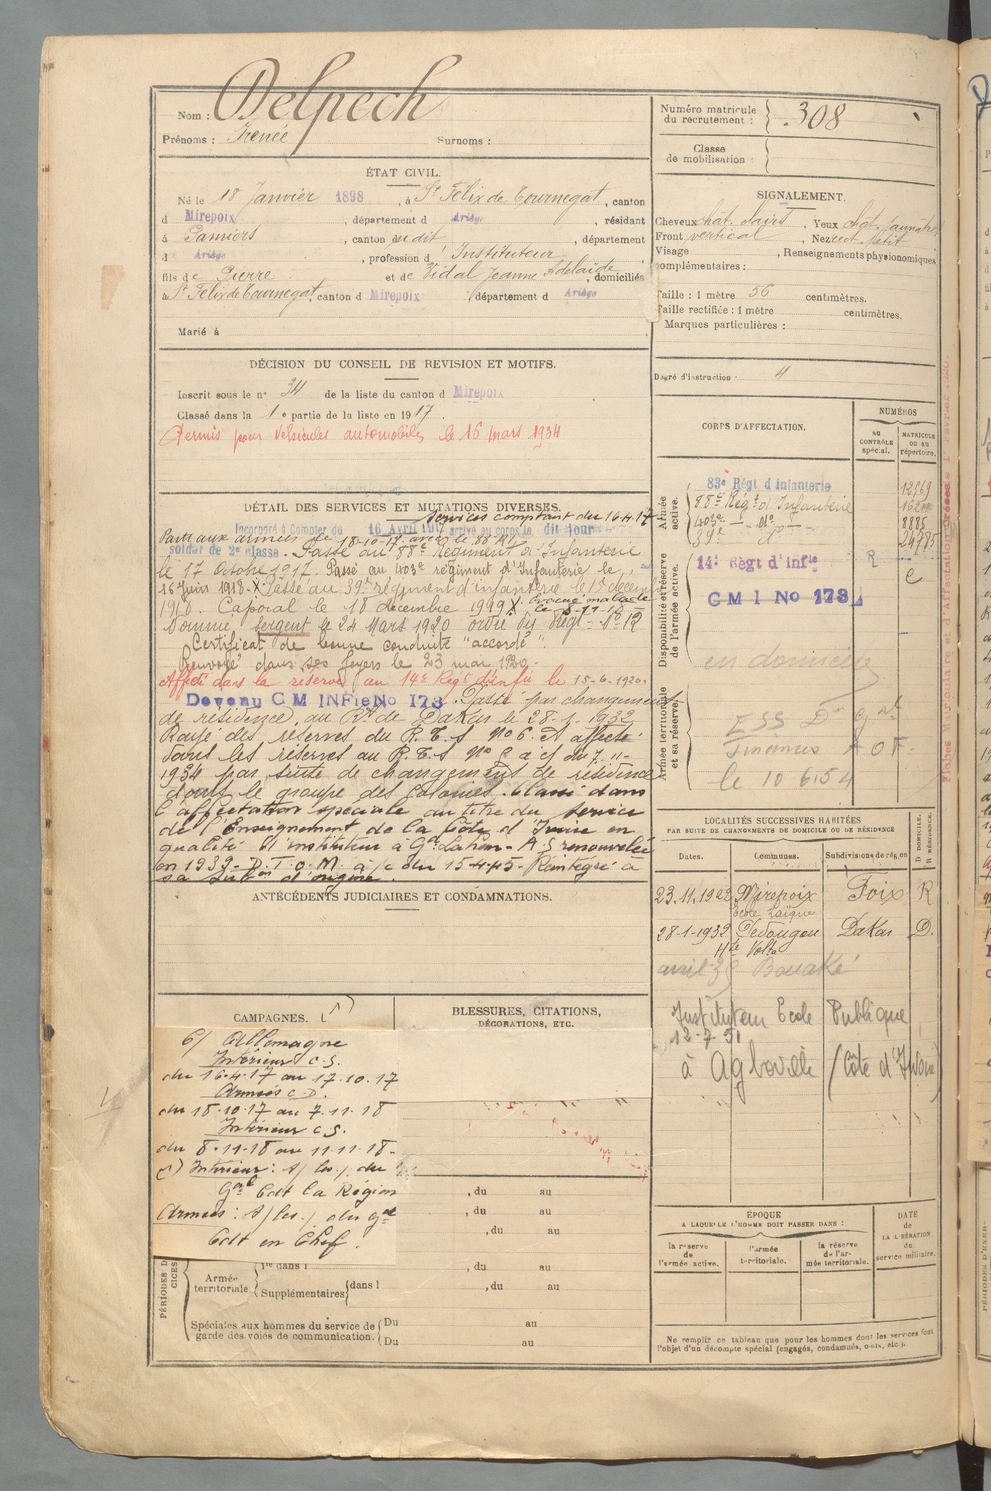 Nom : Delpech
Prénoms : Irénée Surnoms :
Numéro matricule du recrutement : 308
Classe de mobilisation :
ÉTAT CIVIL.
Né le 18 Janvier 1898, à St Felix de Tournegat, canton
d Mirepoix, département d Ariège, résidant
à Pamiers, canton du dit, département
d Ariège, profession d' Instituteur
fils de Pierre et de Vidal Jeanne Adelaïde, domiciliés
à St Felix de Tournegat, canton d Mirepoix département d Ariège
Marié à
SIGNALEMENT.
Cheveux chât. clairs. Yeux chât. jaunâtre
Front vertical, Nez rect. petit
Visage, Renseignements physionomiques
complémentaires :
Taille : 1 mètre 56 centimètres.
Taille rectifiée : 1 mètre centimètres.
Marques particulières :
Degré d'instruction : 4
DÉCISION DU CONSEIL DE REVISION ET MOTIFS.
Inscrit sous le n° 34 de la liste du canton d Mirepoix
Classé dans la 1 e partie de la liste en 1917.
Permis pour véhicules automobiles le 16 mars 1934
DÉTAIL DES SERVICES ET MUTATIONS DIVERSES.
Services comptant du 16-4-17
Incorporé à Compter du 16 Avril 1917 arrivé au corps le dit jour
Parti aux armées le 18-10-17 avec le 88 RI
soldat de 2e classe. Passé au 88e Régiment d'Infanterie
le 17 Octobre 1917. Passé au 403e régiment d'Infanterie le
16 Juin 1918. X Passé au 39e régiment d'infanterie le 1er décembre
X Evacué malade le 8-11-18
Caporal le 18 décembre 1919
Nommé Sergent le 24 Mars 1920 ordre du Régt N° 12
Certificat de bonne conduite "accordé".
Renvoyé dans ses foyers le 23 mai 1920.
Affecté dans la réserve au 14e Régt d'Infie le 15-6-1920.
Devenu C M INFie No 173. Passé par changement
de résidence au Rt de Dakar le 28-1-1932
Rayé des réserves du R.T.S N°6. Et affecté
dans les réserves au R.T.S N° 2 à c/ du 7-11-
1934 par suite de changement de résidence
dans le groupe des Colonies. Classé dans
l'affectation spéciale au titre du service
de l'Enseignement de la Côte d'Ivoire en
qualité d'instituteur à Gd Lahou - A.S renouvelée
en 1939 - D.T.O.M. à/c du 15-4-45 - Réintégré à
sa subon d'origine.
CORPS D'AFFECTATION.
NUMÉROS
AU CONTRÔLE spécial.
MATRICULE OU AU répertoire.
Armée active.
83e Régt d'infanterie 12969
88e Régt d'Infanterie
403e - do - 8885
39e d° 24785
Disponibilité et réserve de l'armée active.
14e Régt d'Infie R
C M I No 173 e
en domicile
Armée territoriale et sa réserve.
A O F
le 10 6 54
LOCALITÉS SUCCESSIVES HABITÉES
PAR SUITE DE CHANGEMENTS DE DOMICILE OU DE RÉSIDENCE
Dates. Communes. Subdivisions de région
D DOMICILE. R RÉSIDENCE.
23.11.1922 Mirepoix Foix R
Ecole Laïque
28-1-1932 Dédougou Dakar D.
Hte Volta
avril 39 Bouaké
Instituteur Ecole Publique
12-7-51
à Agboville (Côte d'Ivoire)
ANTÉCÉDENTS JUDICIAIRES ET CONDAMNATIONS.
CAMPAGNES.
C/ Allemagne
Intérieur C.S.
du 16-4-17 au 17-10-17
Armées C.D.
du 18-10-17 au 7-11-18
Intérieur C.S.
du 8-11-18 au 11-11-18.
Intérieur : du
Gal Cdt la Région
Armées : du Gal
Cdt en Chef.
BLESSURES, CITATIONS,
DÉCORATIONS, ETC.
, du au
, du au
, du au
, du au
Armée territoriale.
Supplémentaires dans l , du au
Spéciales aux hommes du service de garde des voies de communication.
Du au
Du au
ÉPOQUE
A LAQUELLE L'HOMME DOIT PASSER DANS :
la réserve de l'armée active.
l'armée territoriale.
la réserve de l'armée territoriale.
DATE de LA LIBÉRATION du service militaire.
Ne remplir ce tableau que pour les hommes dont les services font
l'objet d'un décompte spécial (engagés, condamnés, omis, etc.).